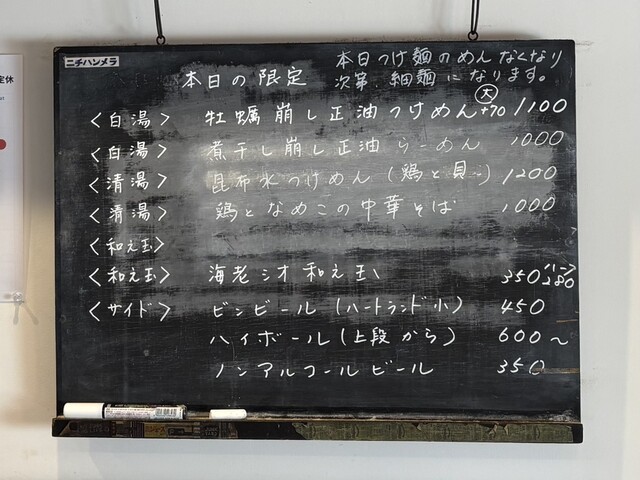 ニチハンメラ
本日の限定
本日つけ麺のめんなくなり
次第、細麺になります。
<白湯> 牡蠣崩し正油つけめん 大+70 1100
<白湯> 煮干し崩し正油らーめん 1000
<清湯> 昆布水つけめん(鶏と貝) 1200
<清湯> 鶏となめこの中華そば 1000
<和え玉>
<和え玉> 海老シオ和え玉 350 ハーフ280
<サイド> ビンビール(ハートランド小) 450
ハイボール(上段から) 600~
ノンアルコールビール 350
定休